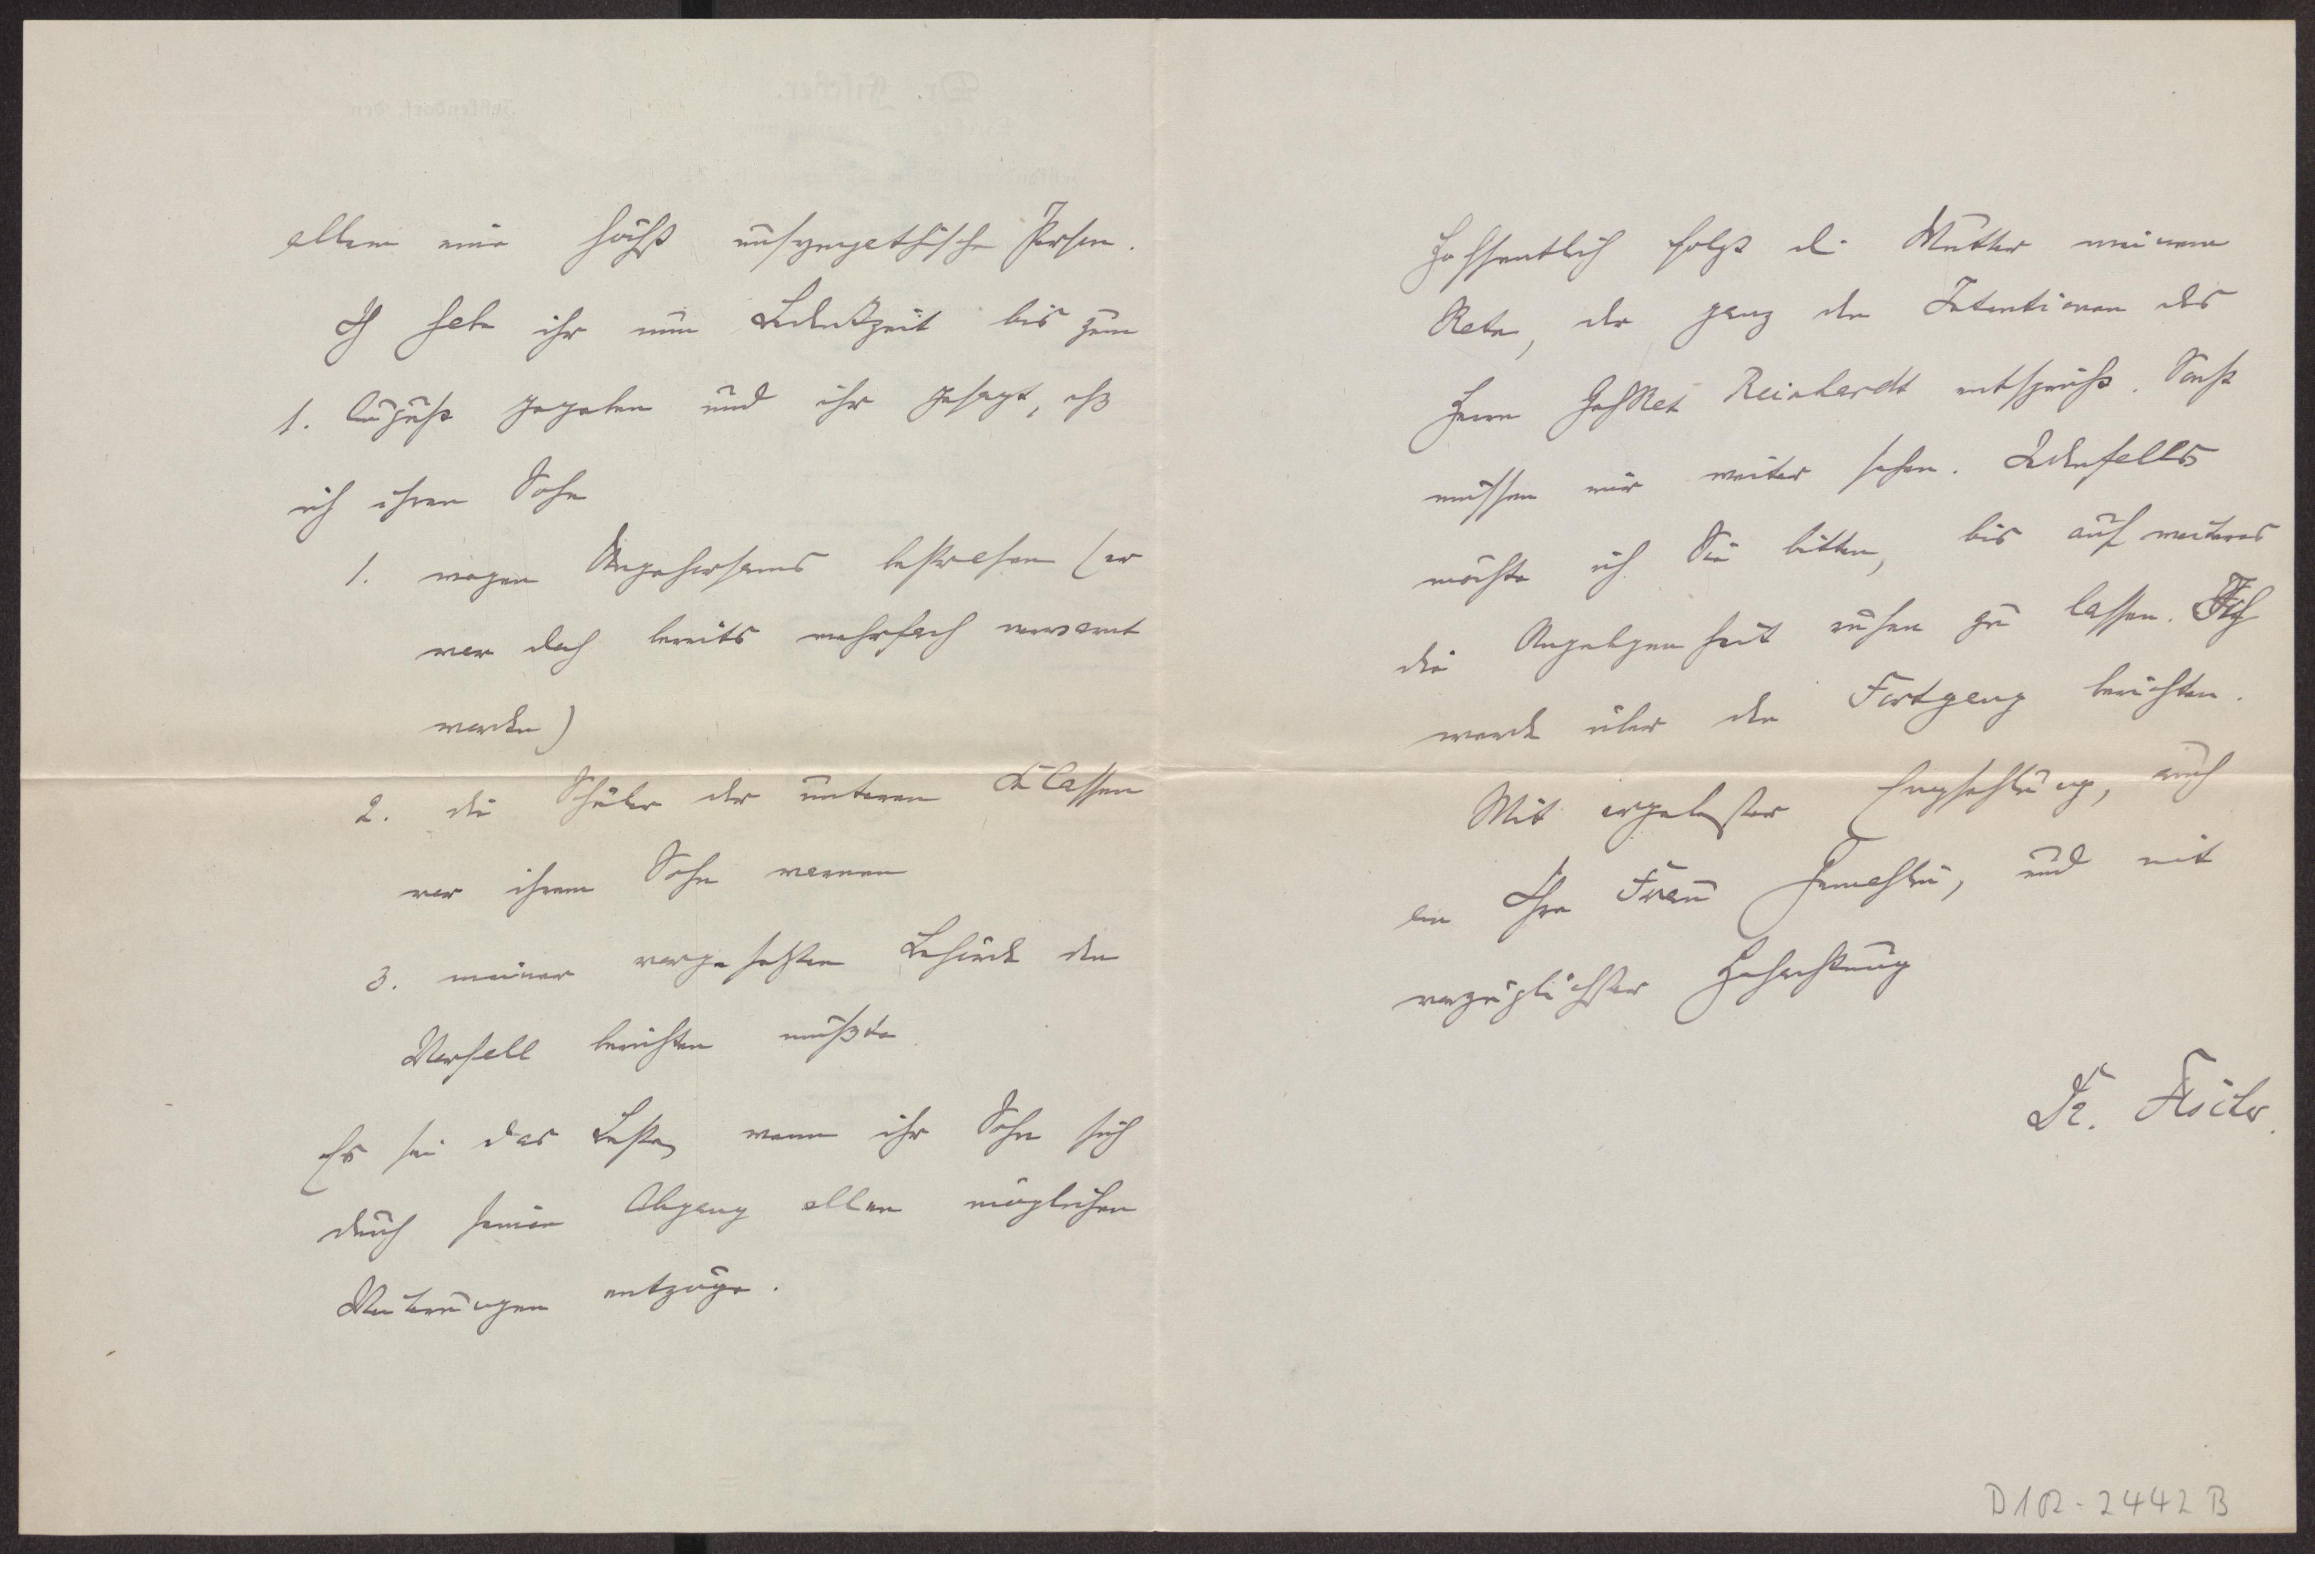 allem eine höchst unsympathische Person.
Ich habe ihr nun Bedenkzeit bis zum
1. August gegeben und ihr gesagt, daß
ich ihren Sohn
1. wegen Ungehorsams bestrafen (er
war doch bereits mehrfach verwarnt
worden)
2. die Schüler der unteren Klassen
vor ihrem Sohn warnen
3. meiner vorgesetzten Behörde den
Vorfall berichten müßte.
Es sei das Beste, wenn ihr Sohn sich
durch seinen Abgang allen möglichen
Weiterungen entzöge.
Hoffentlich folgt die Mutter meinem
Rate, der ganz den Intentionen des
Herrn GehRat Reinhardt entspricht. Sonst
müssen wir weiter sehen. Jedenfalls
möchte ich Sie bitten, bis auf weiteres
die Angelegenheit ruhen zu lassen. Ich
werde über den Fortgang berichten.
Mit ergebenster Empfehlung, auch
an Ihre Frau Gemahlin, und mit
vorzüglichster Hochachtung
Dr. Fischer.
D102-2442B